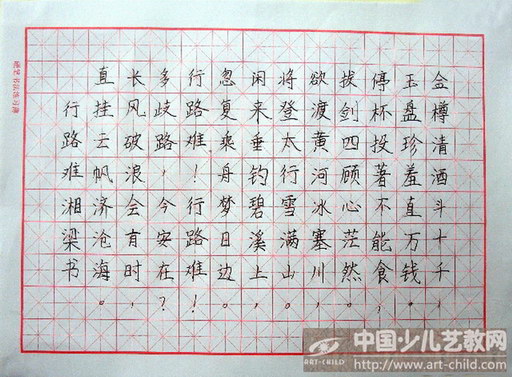 金樽清酒斗十千，
玉盘珍羞直万钱。
停杯投著不能食，
拔剑四顾心茫然。
欲渡黄河冰塞川，
将登太行雪满山。
闲来垂钓碧溪上，
忽复乘舟梦日边。
行路难！行路难！
多歧路，今安在？
长风破浪会有时，
直挂云帆济沧海。
行路难湘梁书
硬笔书法练习簿
ART-CHILD
中国少儿艺教网
http://www.art-child.com